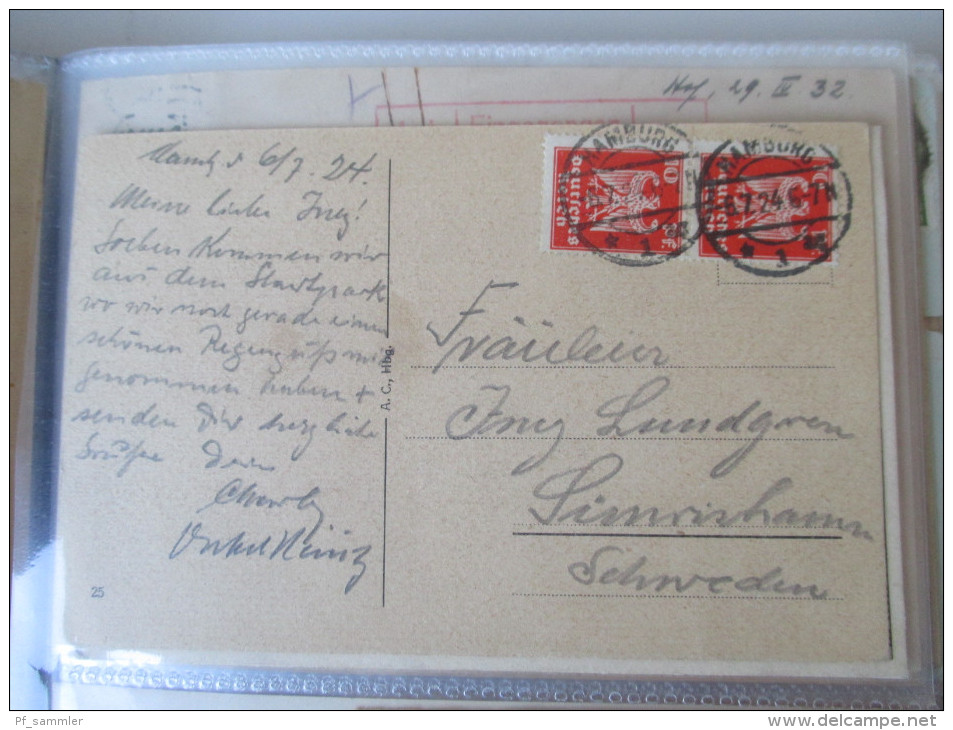 Hof, 29. IX 32.
Hambg d 6/7. 24.
Meine liebe Ingy!
Soeben Kommen wir
aus dem Stadtpark
wo wir noch gerade einen
schönen Regenguß mit
genommen haben +
senden Dir herzliche
Grüße Dein
Charly
Onkel Heinz
25
A. C., Hbg.
HAMBURG
1
10
Deutsches Reich
Pf.
HAMBURG
6.7.24
1
Fräulein
Ingy Lundgren
Simrishamn
Schweden
Pf_sammler
www.delcampe.net